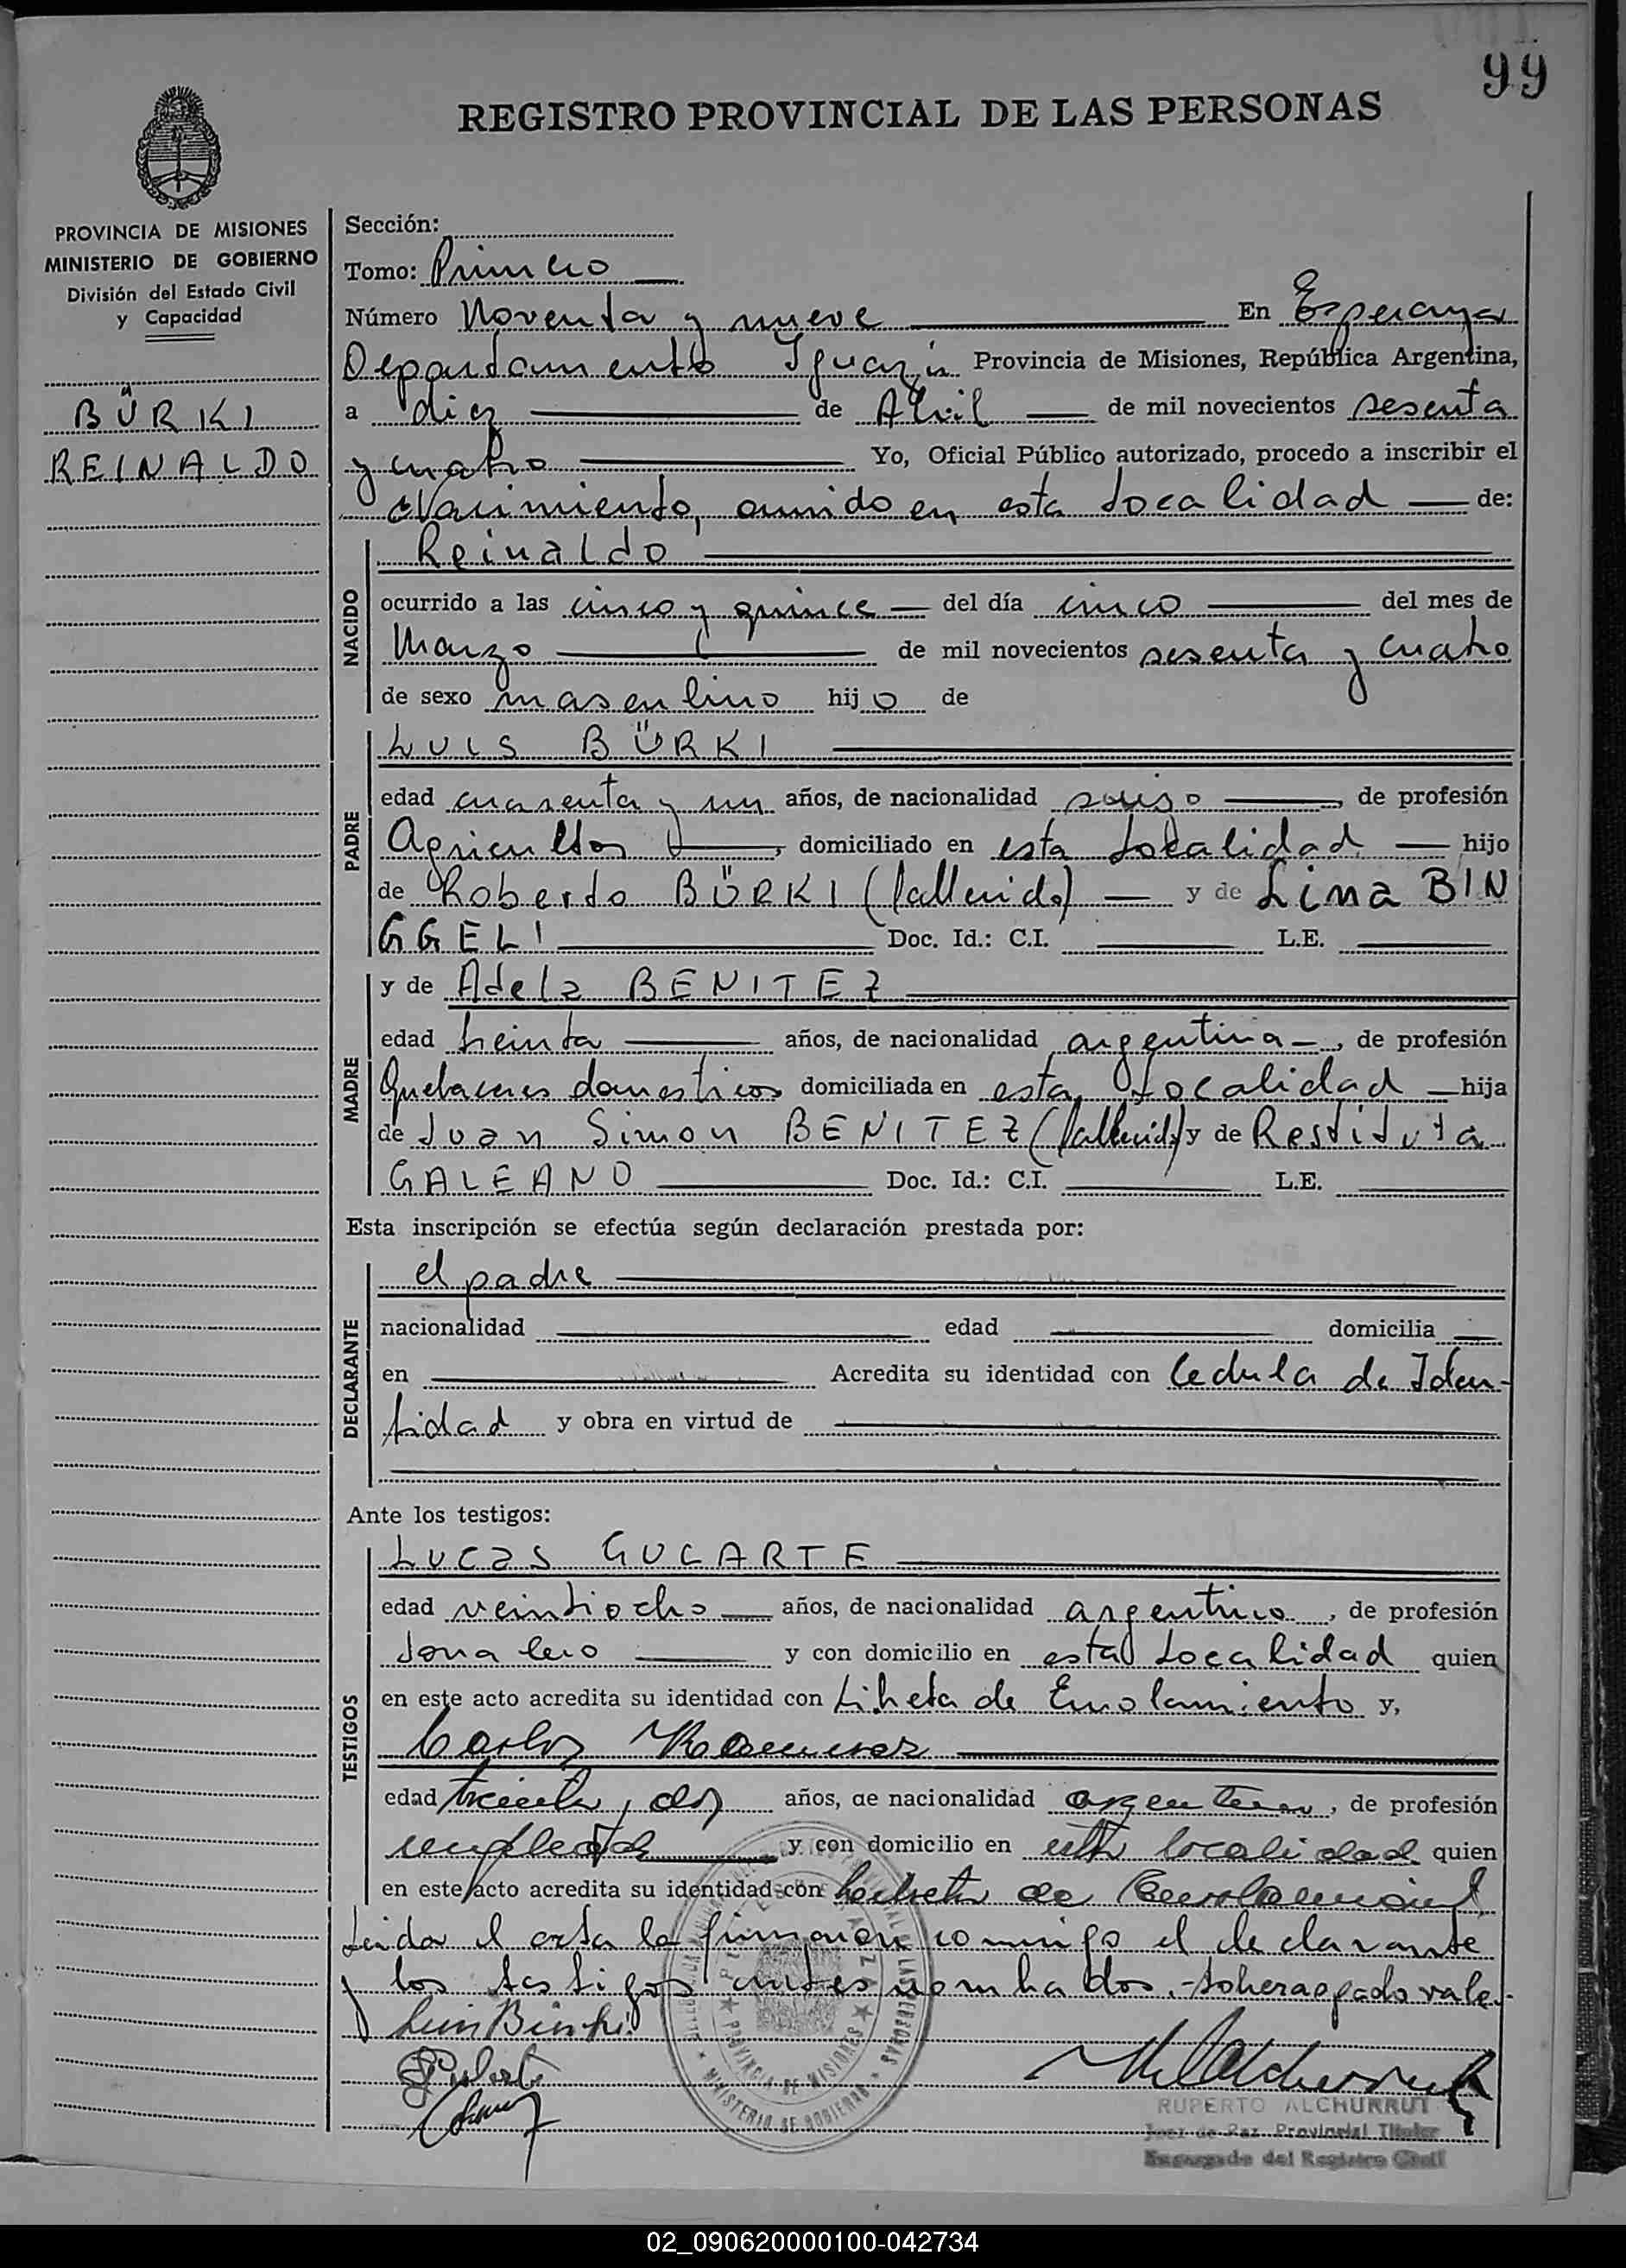 99
REGISTRO PROVINCIAL DE LAS PERSONAS
PROVINCIA DE MISIONES
MINISTERIO DE GOBIERNO
División del Estado Civil
y Capacidad
BÜRKI
REINALDO
Sección:
Tomo: Primero
Número Noventa y nueve En Esperanza
Departamento Iguazú Provincia de Misiones, República Argentina,
a diez de Abril de mil novecientos sesenta
y cuatro Yo, Oficial Público autorizado, procedo a inscribir el
Nacimiento, ocurrido en esta Localidad de:
NACIDO
Reinaldo
ocurrido a las cinco y quince del día cinco del mes de
Marzo de mil novecientos sesenta y cuatro
de sexo masculino hijo de
PADRE
LUIS BÜRKI
edad cuarenta y un años, de nacionalidad suizo, de profesión
Agricultor, domiciliado en esta Localidad hijo
de Roberto BÜRKI (fallecido) y de Lina BIN
GGELI Doc. Id.: C.I. L.E.
MADRE
y de Adela BENITEZ
edad treinta años, de nacionalidad argentina, de profesión
Quehaceres domesticos domiciliada en esta Localidad hija
de Juan Simon BENITEZ (fallecido) y de Restituta
GALEANO Doc. Id.: C.I. L.E.
Esta inscripción se efectúa según declaración prestada por:
DECLARANTE
el padre
nacionalidad edad domicilia
en Acredita su identidad con Cedula de Iden-
tidad y obra en virtud de
Ante los testigos:
TESTIGOS
Lucas GUCARTE
edad veintiocho años, de nacionalidad argentino, de profesión
Jornalero y con domicilio en esta Localidad quien
en este acto acredita su identidad con Libreta de Enrolamiento y,
Carlos
edad treinta y dos años, de nacionalidad argentino, de profesión
empleado y con domicilio en esta localidad quien
en este acto acredita su identidad con Libreta de Enrolamiento
Leida el acta la firmaron conmigo el declarante
y los testigos antes nombrados.- Sobreraspado vale.-
Luis Bürki
PROVINCIA DE MISIONES
MINISTERIO DE GOBIERNO
RUPERTO ALCHURRUT
Juez de Paz Provincial Titular
Encargado del Registro Civil
02_090620000100-042734